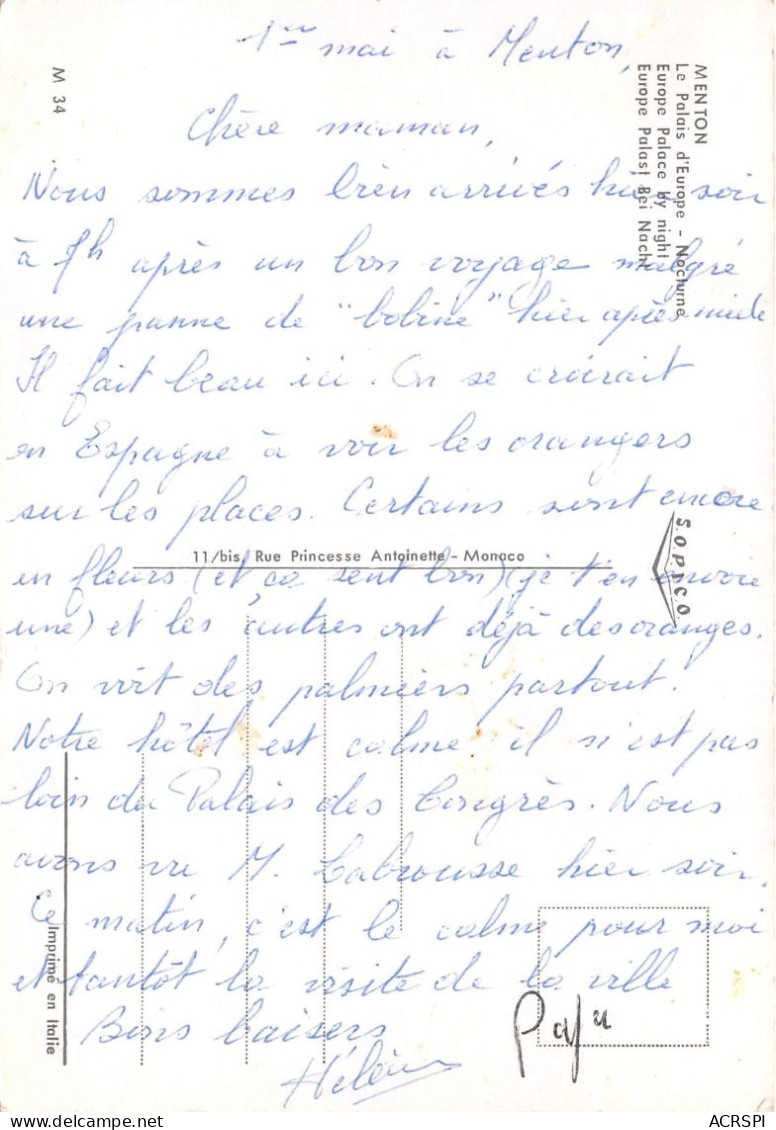 1er mai à Menton,
Chère maman,
Nous sommes bien arrivés hier soir
à 7h après un bon voyage malgré
une panne de "bobine" hier après-midi
Il fait beau ici. On se croirait
en Espagne à voir les orangers
sur les places. Certains sont encore
en fleurs (et ça sent bon) (je t'en envoie
une) et les autres ont déjà des oranges.
On voit des palmiers partout.
Notre hôtel est calme il n'est pas
loin du Palais des Congrès. Nous
avons vu M. Labrousse hier soir.
Ce matin, c'est le calme pour moi
et tantôt la visite de la ville
Bons baisers
Hélène
MENTON
Le Palais d'Europe - Nocturne
Europe Palace by night
Europe Palast Bei Nacht
M 34
11/bis, Rue Princesse Antoinette - Monaco
S.O.P.I.C.O.
Imprimé en Italie
ACRSPI